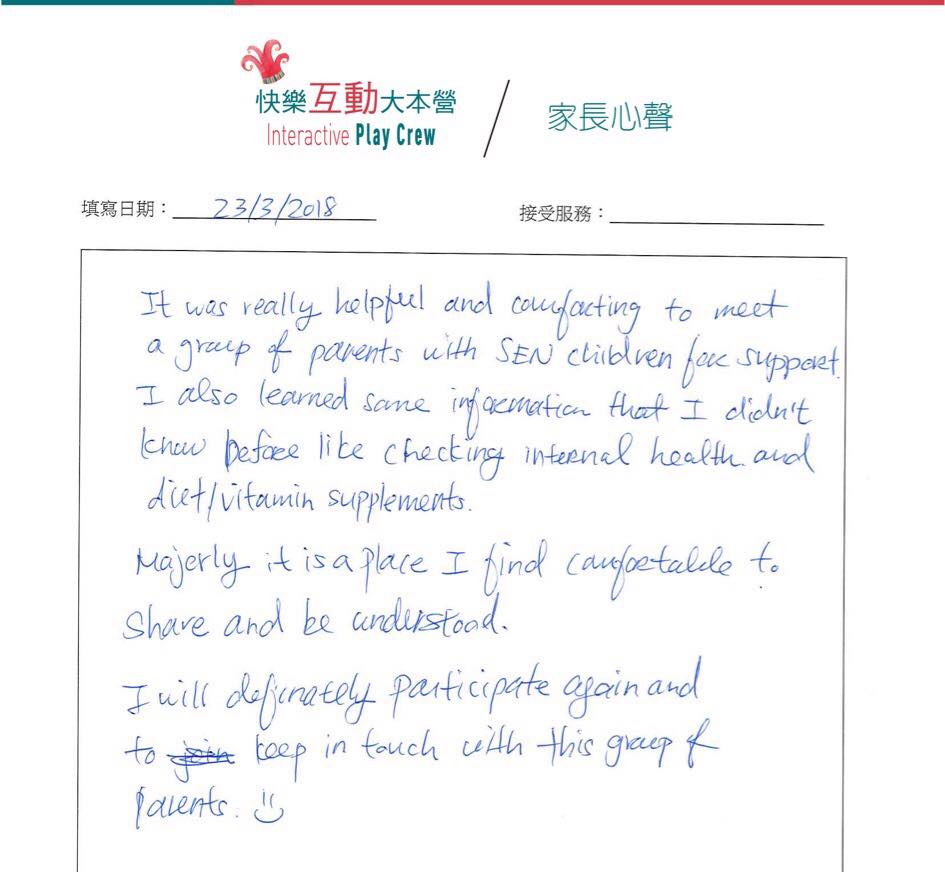 快樂互動大本營
Interactive Play Crew
家長心聲
填寫日期： 23/3/2018
接受服務：
It was really helpful and comforting to meet
a group of parents with SEN children for support.
I also learned some information that I didn't
know before like checking internal health and
diet/vitamin supplements.
Majerly it is a place I find comfortable to
share and be understood.
I will definately participate again and
to join keep in touch with this group of
parents.